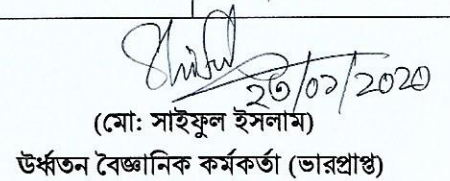 ২৩/০১/2020
(মো: সাইফুল ইসলাম)
উর্ধ্বতন বৈজ্ঞানিক কর্মকর্তা (ভারপ্রাপ্ত)